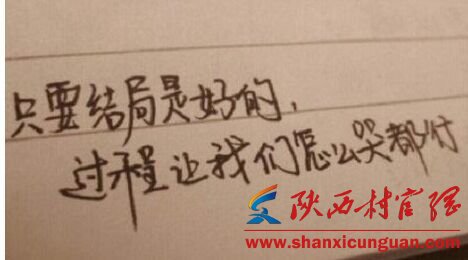 只要结局是好的,
过程让我们怎么哭都行
陕西村官网
www.shanxicunguan.com